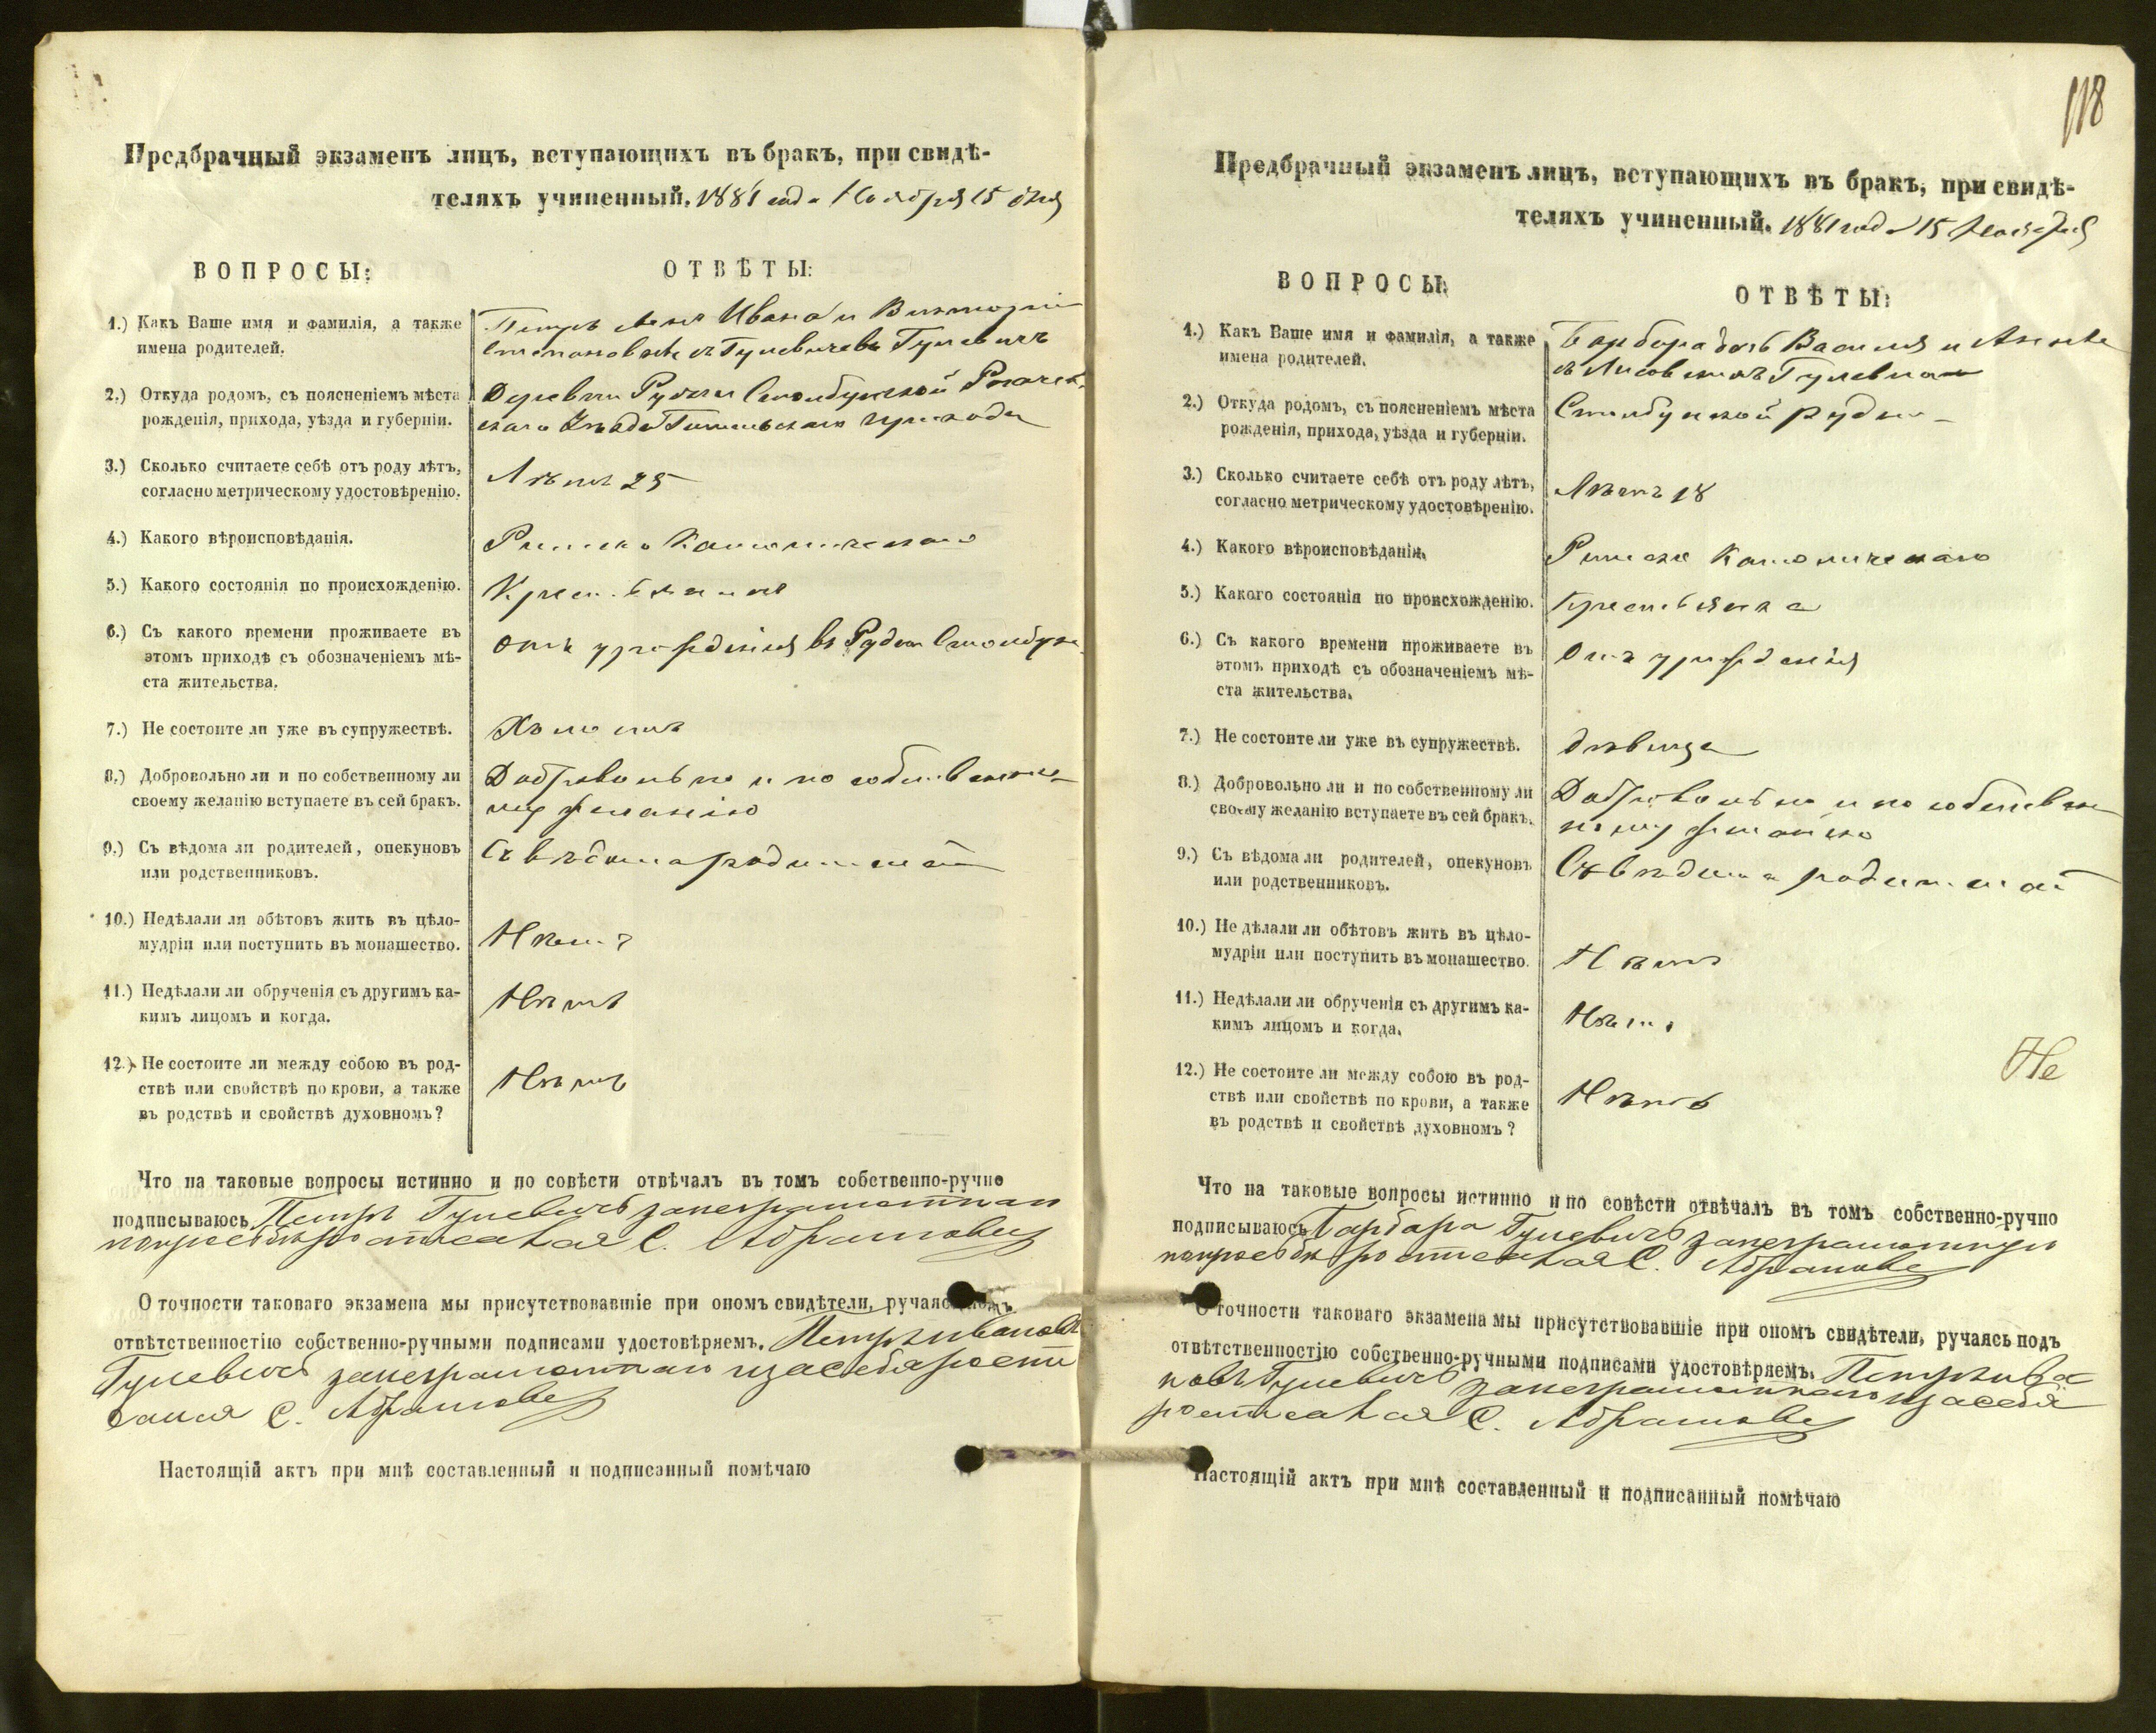 Предбрачный экзаменъ лицъ, вступающихъ въ бракъ, при свидѣ-
теляхъ учиненный. 1881 года Ноября 15 дня
ВОПРОСЫ:
ОТВѢТЫ:
1.) Какъ Ваше имя и фамилія, а также
имена родителей.
Петръ Ивана и Викторіи
Гулевичъ
2.) Откуда родомъ, съ поясненіемъ мѣста
рожденія, прихода, уѣзда и губерніи.
Деревни Рудни Столбунской Рогачев
скаго Уѣзда прихода
3.) Сколько считаете себѣ отъ роду лѣтъ,
согласно метрическому удостовѣренію.
Лѣтъ 25
4.) Какого вѣроисповѣданія.
Римско Католическаго
5.) Какого состоянія по происхожденію.
Крестьянинъ
6.) Съ какого времени проживаете въ
этомъ приходѣ съ обозначеніемъ мѣ-
ста жительства.
Отъ урожденія въ Рудни Столбун
7.) Не состоите ли уже въ супружествѣ.
Холостъ
8.) Добровольно ли и по собственному ли
своему желанію вступаете въ сей бракъ.
Добровольно и по собственно
му желанію
9.) Съ вѣдома ли родителей, опекуновъ
или родственниковъ.
Съ вѣдома родителей
10.) Недѣлали ли обѣтовъ жить въ цѣло-
мудріи или поступить въ монашество.
Нѣтъ
11.) Недѣлали ли обрученія съ другимъ ка-
кимъ лицомъ и когда.
Нѣтъ
12.) Не состоите ли между собою въ род-
ствѣ или свойствѣ по крови, а также
въ родствѣ и свойствѣ духовномъ?
Нѣтъ
Что на таковые вопросы истинно и по совѣсти отвѣчалъ въ томъ собственно-ручно
подписываюсь Петръ Гулевичъ занеграмотнаго
попросьбѣ росписался С. Абрамовъ
О точности таковаго экзамена мы присутствовавшіе при ономъ свидѣтели, ручаясь подъ
отвѣтственностію собственно-ручными подписами удостовѣряемъ. Петръ Ивановъ
Гулевичъ занеграмотнаго изасебя роспи
сался С. Абрамовъ
Настоящій актъ при мнѣ составленный и подписанный помѣчаю
118
Предбрачный экзаменъ лицъ, вступающихъ въ бракъ, при свидѣ-
теляхъ учиненный. 1881 года 15 Ноября
ВОПРОСЫ:
ОТВѢТЫ:
1.) Какъ Ваше имя и фамилія, а также
имена родителей.
Барбара дочь Василія и Анны
съ Лисовскихъ Гулевичъ
2.) Откуда родомъ, съ поясненіемъ мѣста
рожденія, прихода, уѣзда и губерніи.
Столбунской рудни
3.) Сколько считаете себѣ отъ роду лѣтъ,
согласно метрическому удостовѣренію.
Лѣтъ 18
4.) Какого вѣроисповѣданія.
Римско Католическаго
5.) Какого состоянія по происхожденію.
Крестьянка
6.) Съ какого времени проживаете въ
этомъ приходѣ съ обозначеніемъ мѣ-
ста жительства.
Отъ урожденія
7.) Не состоите ли уже въ супружествѣ.
дѣвица
8.) Добровольно ли и по собственному ли
своему желанію вступаете въ сей бракъ.
Добровольно и по собствен
ному желанію
9.) Съ вѣдома ли родителей, опекуновъ
или родственниковъ.
Съ вѣдома родителей
10.) Не дѣлали ли обѣтовъ жить въ цѣло-
мудріи или поступить въ монашество.
Нѣтъ
11.) Недѣлали ли обрученія съ другимъ ка-
кимъ лицомъ и когда.
Нѣтъ
12.) Не состоите ли между собою въ род-
ствѣ или свойствѣ по крови, а также
въ родствѣ и свойствѣ духовномъ?
Нѣтъ
Не
Что на таковые вопросы истинно и по совѣсти отвѣчалъ въ томъ собственно-ручно
подписываюсь Барбара Гулевичъ занеграмотную
попросьбѣ росписался С. Абрамовъ
О точности таковаго экзамена мы присутствовавшіе при ономъ свидѣтели, ручаясь подъ
отвѣтственностію собственно-ручными подписами удостовѣряемъ. Петръ Ива
новъ Гулевичъ занеграмотнаго изасебя
росписался С. Абрамовъ
Настоящій актъ при мнѣ составленный и подписанный помѣчаю